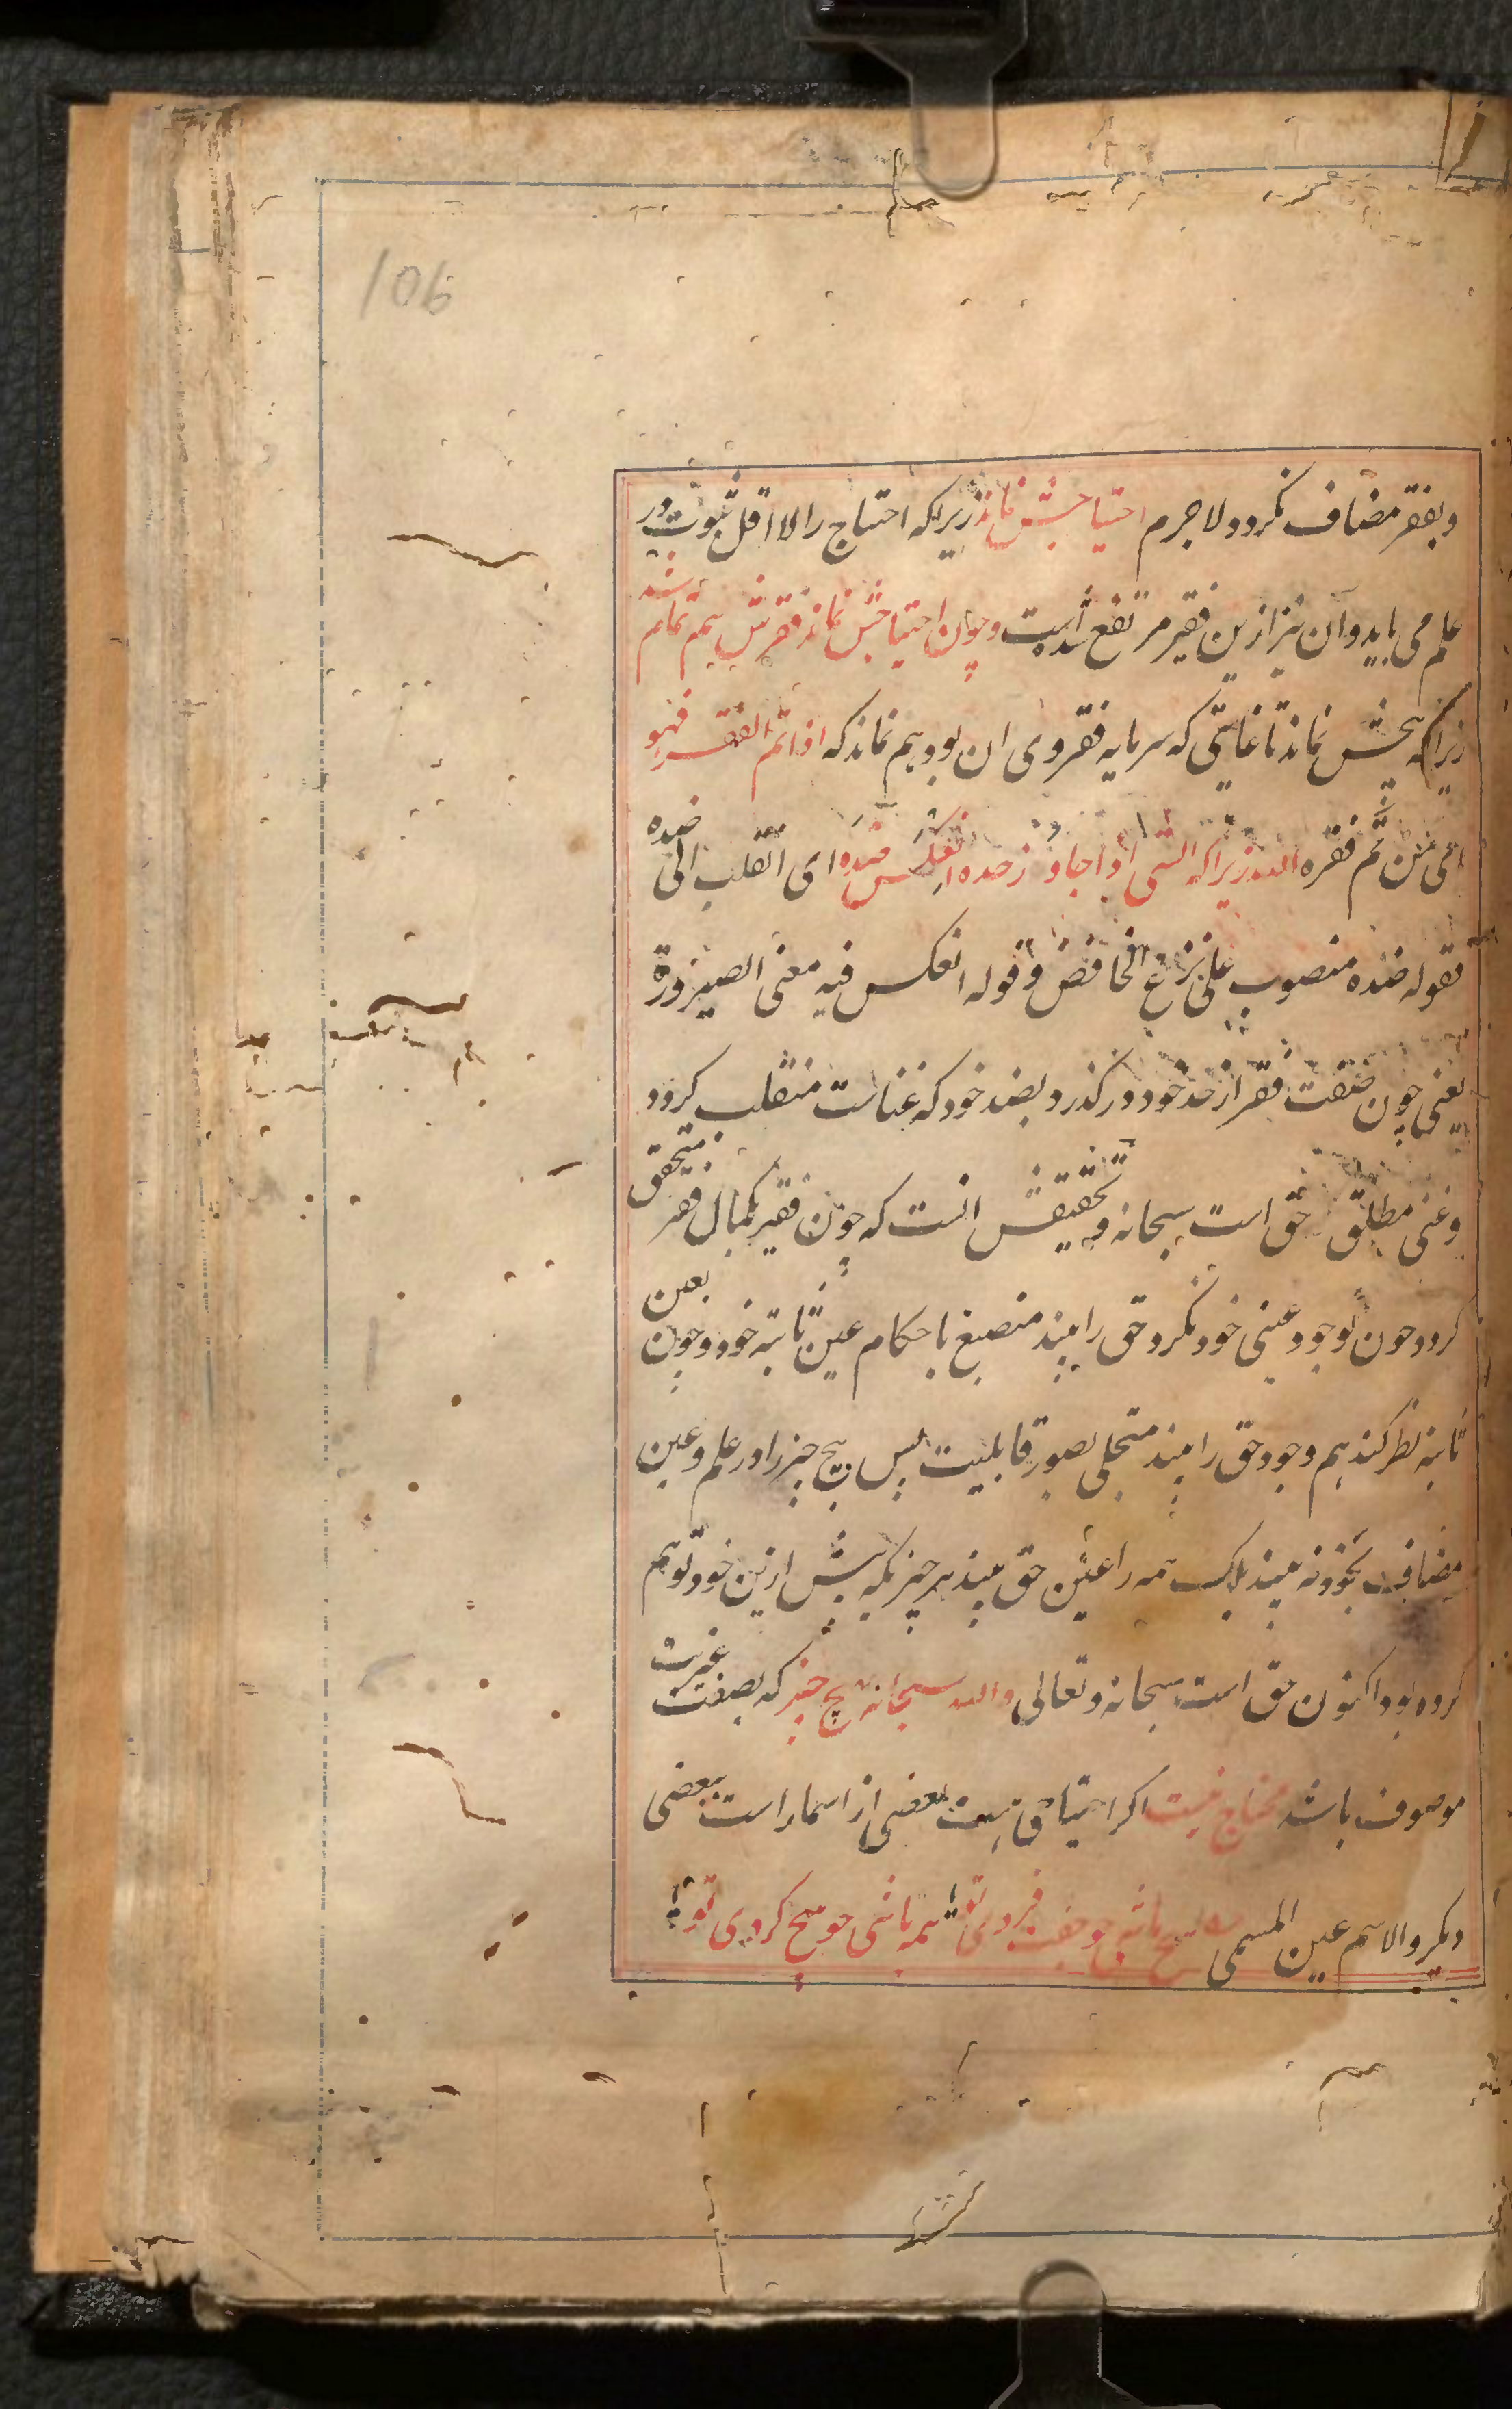 106
وبفقر مضاف نکردد لاجرم احتیاجش نماند زیراکه احتیاج را لااقل ثبوت در
علم می باید وآن نیز ازین فقیر مرتفع شده است وچون احتیاجش نماند فقرش هم تمام شد
زیراکه هیچش نماند تا غایتی که سرمایه فقر وی ان بود هم نماند که اذا تم الفقر فهو
ای من تم فقره الله زیراکه الشی اذا جاوز حده انعکس ضده ای انقلب الی ضده
فقوله ضده منصوب علی نزع الخافض وقوله انعکس فیه معنی الصیرورة
یعنی چون صفت فقر از حد خود درکذرد بضد خود که غناست منقلب کردد
وغنی مطلق حق است سبحانه وتحقیقش انست که چون فقیر بکمال فقر متحقق
کردد چون بوجود عینی خود نکرد حق را بیند منصبغ باحکام عین ثابته خود وچون بعین
ثابته نظر کند هم وجود حق را بیند متجلی بصور قابلیت پس هیچ چیز را در علم وعین
مضاف بخود نه بیند بلکه همه را عین حق بیند هر چیز که پیش ازین خود توهم
کرده بود اکنون حق است سبحانه وتعالی والله سبحانه هیچ چیز که بصفت غیریت
موصوف باشد محتاج نیست اکر احتیاجی هست بعضی از اسما راست ببعضی
دیکر والاسم عین المسمی هیچ باشی چو جفت فردی تو همه باشی چو هیچ کردی تو